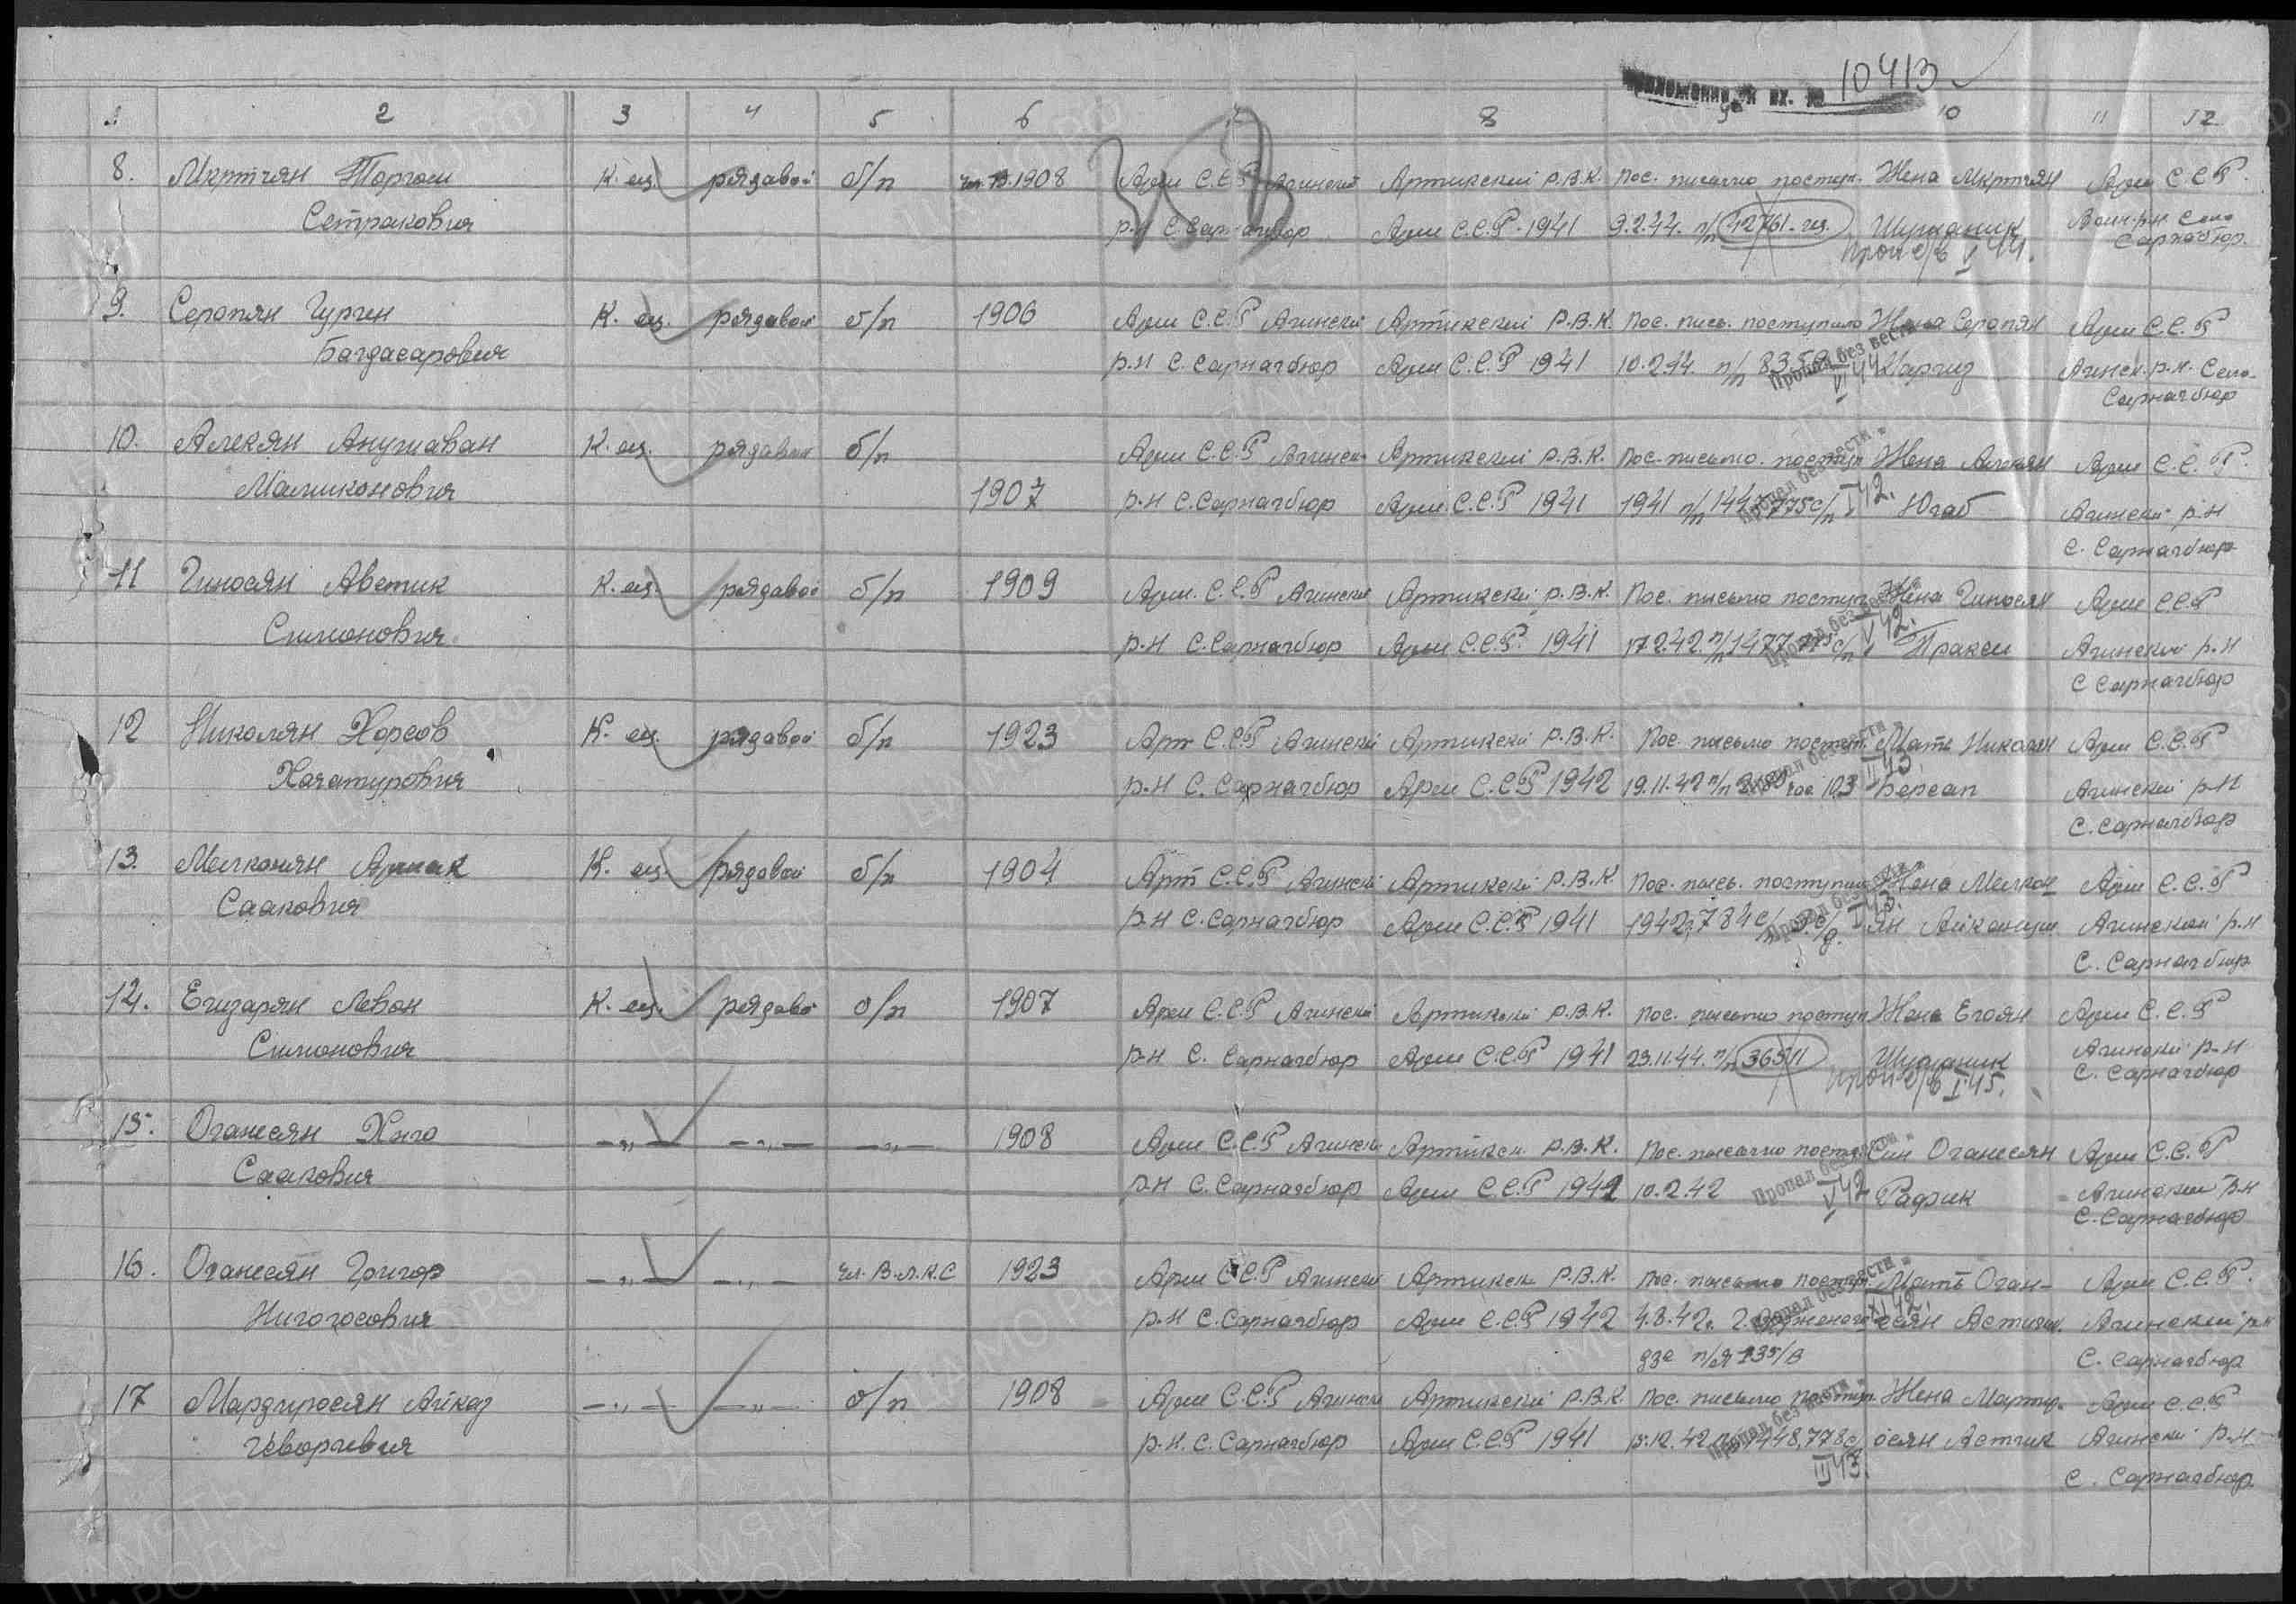 10413
1 2 3 4 5 6 7 8 9 10 11 12
8. Мкртчян Торгом К. ец. рядовой б/п 1908 Арм С.С.Р Агинский Артикский Р.В.К. Пос. письмо поступ. Жена Мкртчян Арм С.С.Р.
Сетракович р.н С. Сарнагбюр Арм С.С.Р. 1941 9.2.44. п/п 42761-гц. Шушаник р.н. Село
Проп б/в V 44. Сарнагбюр.
9. Серопян Гурген К. ец. рядовой б/п 1906 Арм С.С.Р Агински Артикский Р.В.К. Пос. пись. поступило Жена Серопян Арм С.С.Р
Багдасарович р.н С. Сарнагбюр Арм С.С.Р 1941 10.2.44. п/п Пропал без вести VI 44 Агинск. р.н. Село
Сарнагбюр
10. Алекян Анушаван К. ец. рядовой б/п Арм С.С.Р Агински Артикский Р.В.К. Пос. письмо. поступ Жена Алекян Арм С.С.Р.
Маликонович 1907 р.н С. Сарнагбюр Арм. С.С.Р 1941 1941 п/п 775 с/п Пропал без вести I 42. Югаб Агински р.н
С. Сарнагбюр
11 Гиносян Аветик К. ец. рядовой б/п 1909 Арм. С.С.Р Агинский Артикский Р.В.К. Пос. письмо поступ. Жена Гиносян Арм С.С.Р
Симонович р.н С. Сарнагбюр Арм С.С.Р. 1941 17.2.42. п/п 1477 775 с/п Пропал без вести V 42. Пракси Агинский р.н
С Сарнагбюр
12 Николян Хорсов К. ец. рядовой б/п 1923 Арм С.С.Р Агински Артикский Р.В.К. Пос. письмо поступ. Мать Николян Арм С.С.Р
Хачатурович р.н С. Сарнагбюр Арм С.С.Р 1942 19.11.42 п/п 103 Пропал без вести II 43. Агинский р.н
С. Сарнагбюр
13. Мелконян Аршак К. ец. рядовой б/п 1904 Арм С.С.Р Агински Артикский Р.В.К. Пос. пись. поступил Жена Мелкон Арм С.С.Р
Саакович р.н С. Сарнагбюр Арм С.С.Р 1941 1942, 784 с/п Пропал без вести ян Айкануш Агинский р.н
С. Сарнагбюр
14. Егизарян Левон К. ец. рядово б/п 1907 Арм С.С.Р Агински Артикский Р.В.К. Пос. письмо поступ Жена Егоян Арм С.С.Р
Симонович р.н С. Сарнагбюр Арм С.С.Р 1941 23.11.44. п/п 36511 Шушаник Агински р.н
Проп б/в I 45. С. Сарнагбюр
15. Оганесян Хнго —„— —„— —„— 1908 Арм С.С.Р Агински Артикск. Р.В.К. Пос. письмо поступ. Син Оганесян Арм С.С.Р
Саакович р.н С. Сарнагбюр Арм С.С.Р 1941 10.2.42 Пропал без вести V 42 Рафик Агинский р.н
С. Сарнагбюр
16. Оганесян Григор —„— —„— чл. В.Л.К.С 1923 Арм С.С.Р Агински Артикски Р.В.К. Пос. письмо поступ. Мать Оган- Арм С.С.Р.
Нигогосович р.н С. Сарнагбюр Арм С.С.Р 1942 4.8.42. г. Орженоги Пропал без вести XI 42. есян Агинский р.н
дзе п/я 135/в С. Сарнагбюр
17 Мардиросян Айказ —„— —„— б/п 1908 Арм С.С.Р Агински Артикский Р.В.К Пос. письмо поступ. Жена Мартир- Арм С.С.Р
Геворгвич р.н. С. Сарнагбюр Арм С.С.Р 1941 15.12.42 1448, 778 с/ осян Астгик Агински р.н.
Пропал без вести III 43. С. Сарнагбюр.